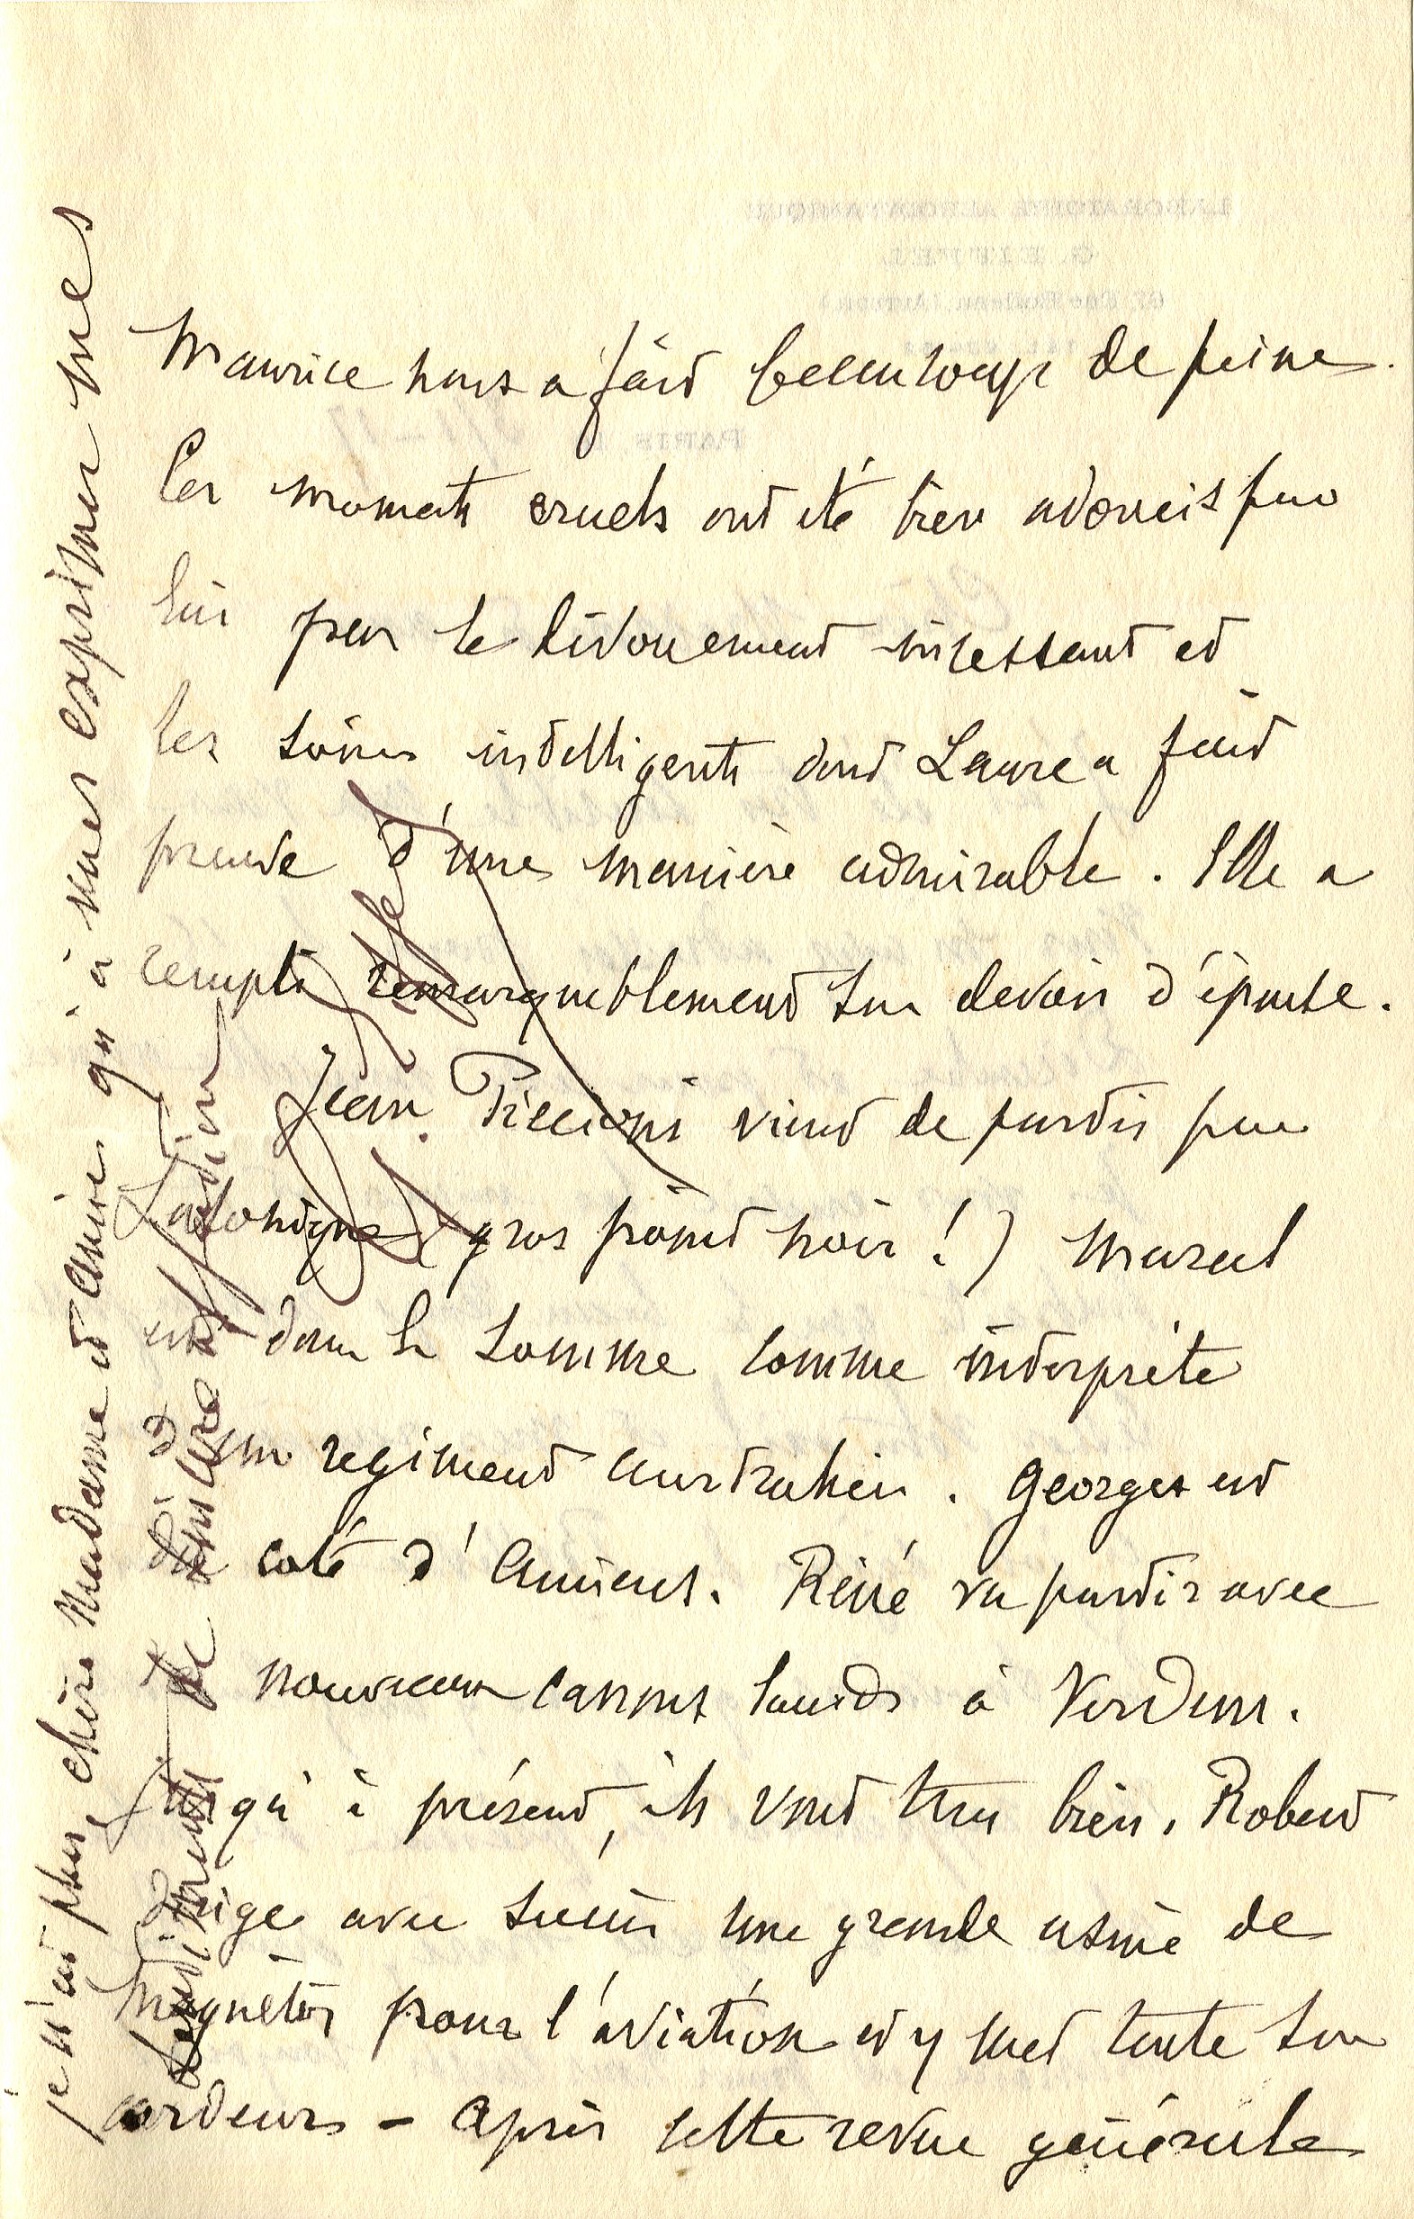 Maurice nous a fait beaucoup de peine.
Ces moments cruels ont été bien adoucis pour
lui par le dévouement incessant et
les soins intelligents dont Laure a fait
preuve d'une manière admirable. Elle a
rempli remarquablement son devoir d'épouse.
Jean Piccioni vient de partir pour
Salonique (gros point noir!) Marcel
est dans la Somme comme interprète
d'un régiment australien. Georges est
du coté d'Amiens. Réné va partir avec
nouveaux canons lourds à Verdun.
Jusqu'à présent, ils vont tous bien. Robert
dirige avec succès une grande usine de
magnétos pour l'aviation et y met toute son
ardeur - Après cette revue générale
je n'ai plus, chère Madame et amie, qu'à vous exprimer mes
sentiments de sincère affection
G. Eiffel
LABORATOIRE AERODYNAMIQUE
G. EIFFEL
67 Rue Boileau (Auteuil)
PARIS